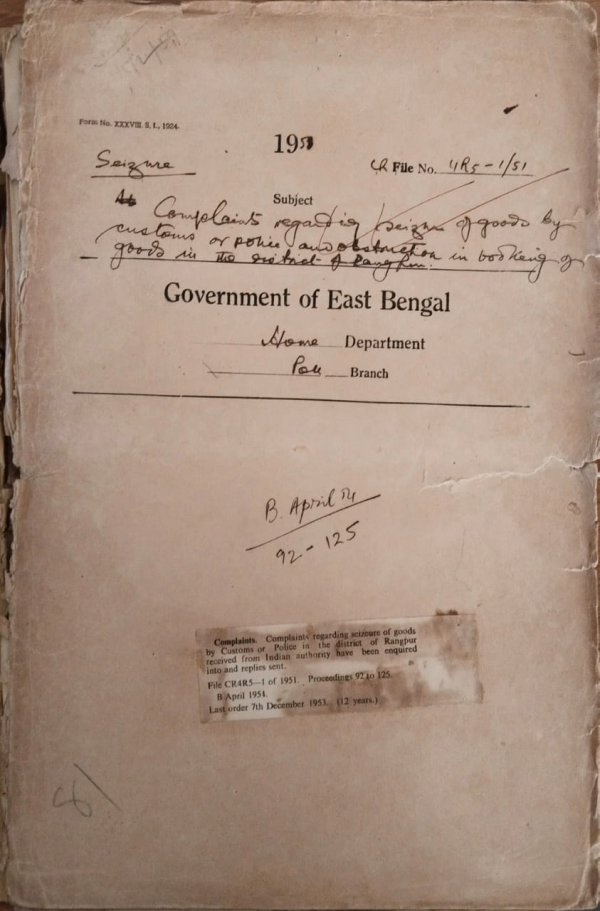 Form No. XXXVIII. S. I., 1924.
1951
Seizure
CR File No. 4R5-1/51
Subject
Complaints regarding seizure of goods by
customs or police and obstruction in booking of
goods in the district of Rangpur.
Government of East Bengal
Home Department
Poll Branch
B. April 54
92-125
Complaints. Complaints regarding seizure of goods
by Customs or Police in the district of Rangpur
received from Indian authority have been enquired
into and replies sent.
File CR4R5—1 of 1951. Proceedings 92 to 125.
B April 1954.
Last order 7th December 1953. (12 years.)